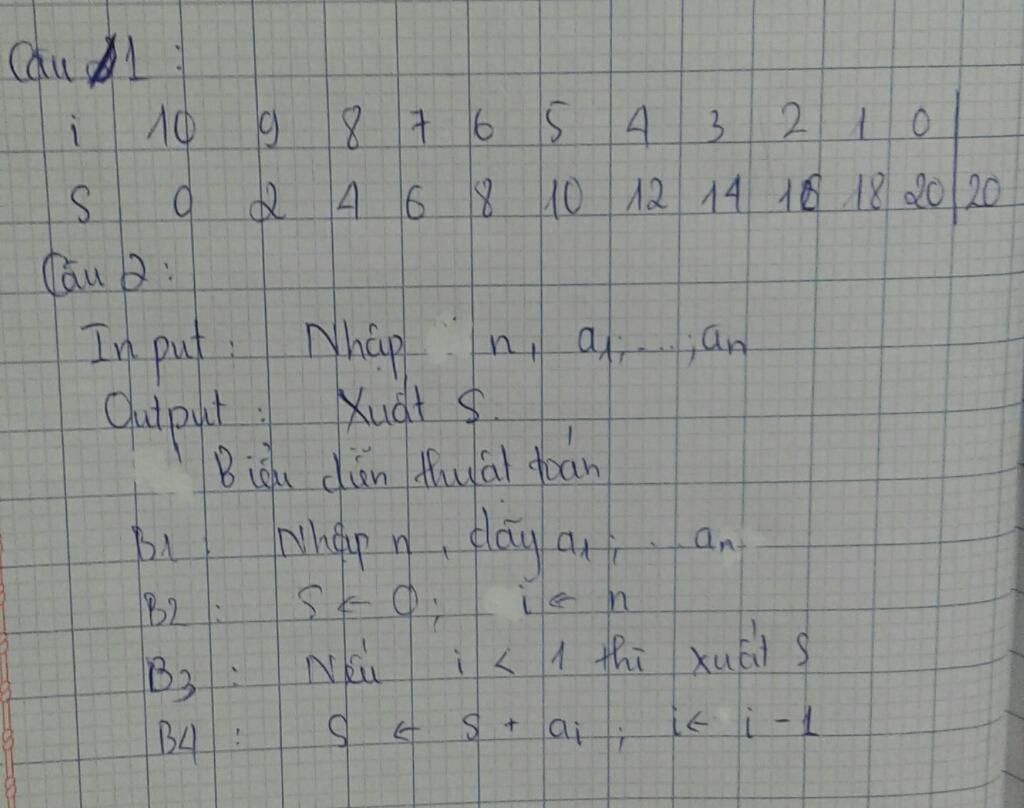 Câu 1 :
i 10 9 8 7 6 5 4 3 2 1 0
S 0 2 4 6 8 10 12 14 16 18 20 20
Câu 2 :
Input : Nhập n, a1, ..., an
Output : Xuất S.
Biểu diễn thuật toán
B1 Nhập n, dãy a1, .. an.
B2 : S ← 0; i ← n
B3 : Nếu i < 1 thì xuất S
B4 : S ← S + ai ; i ← i - 1